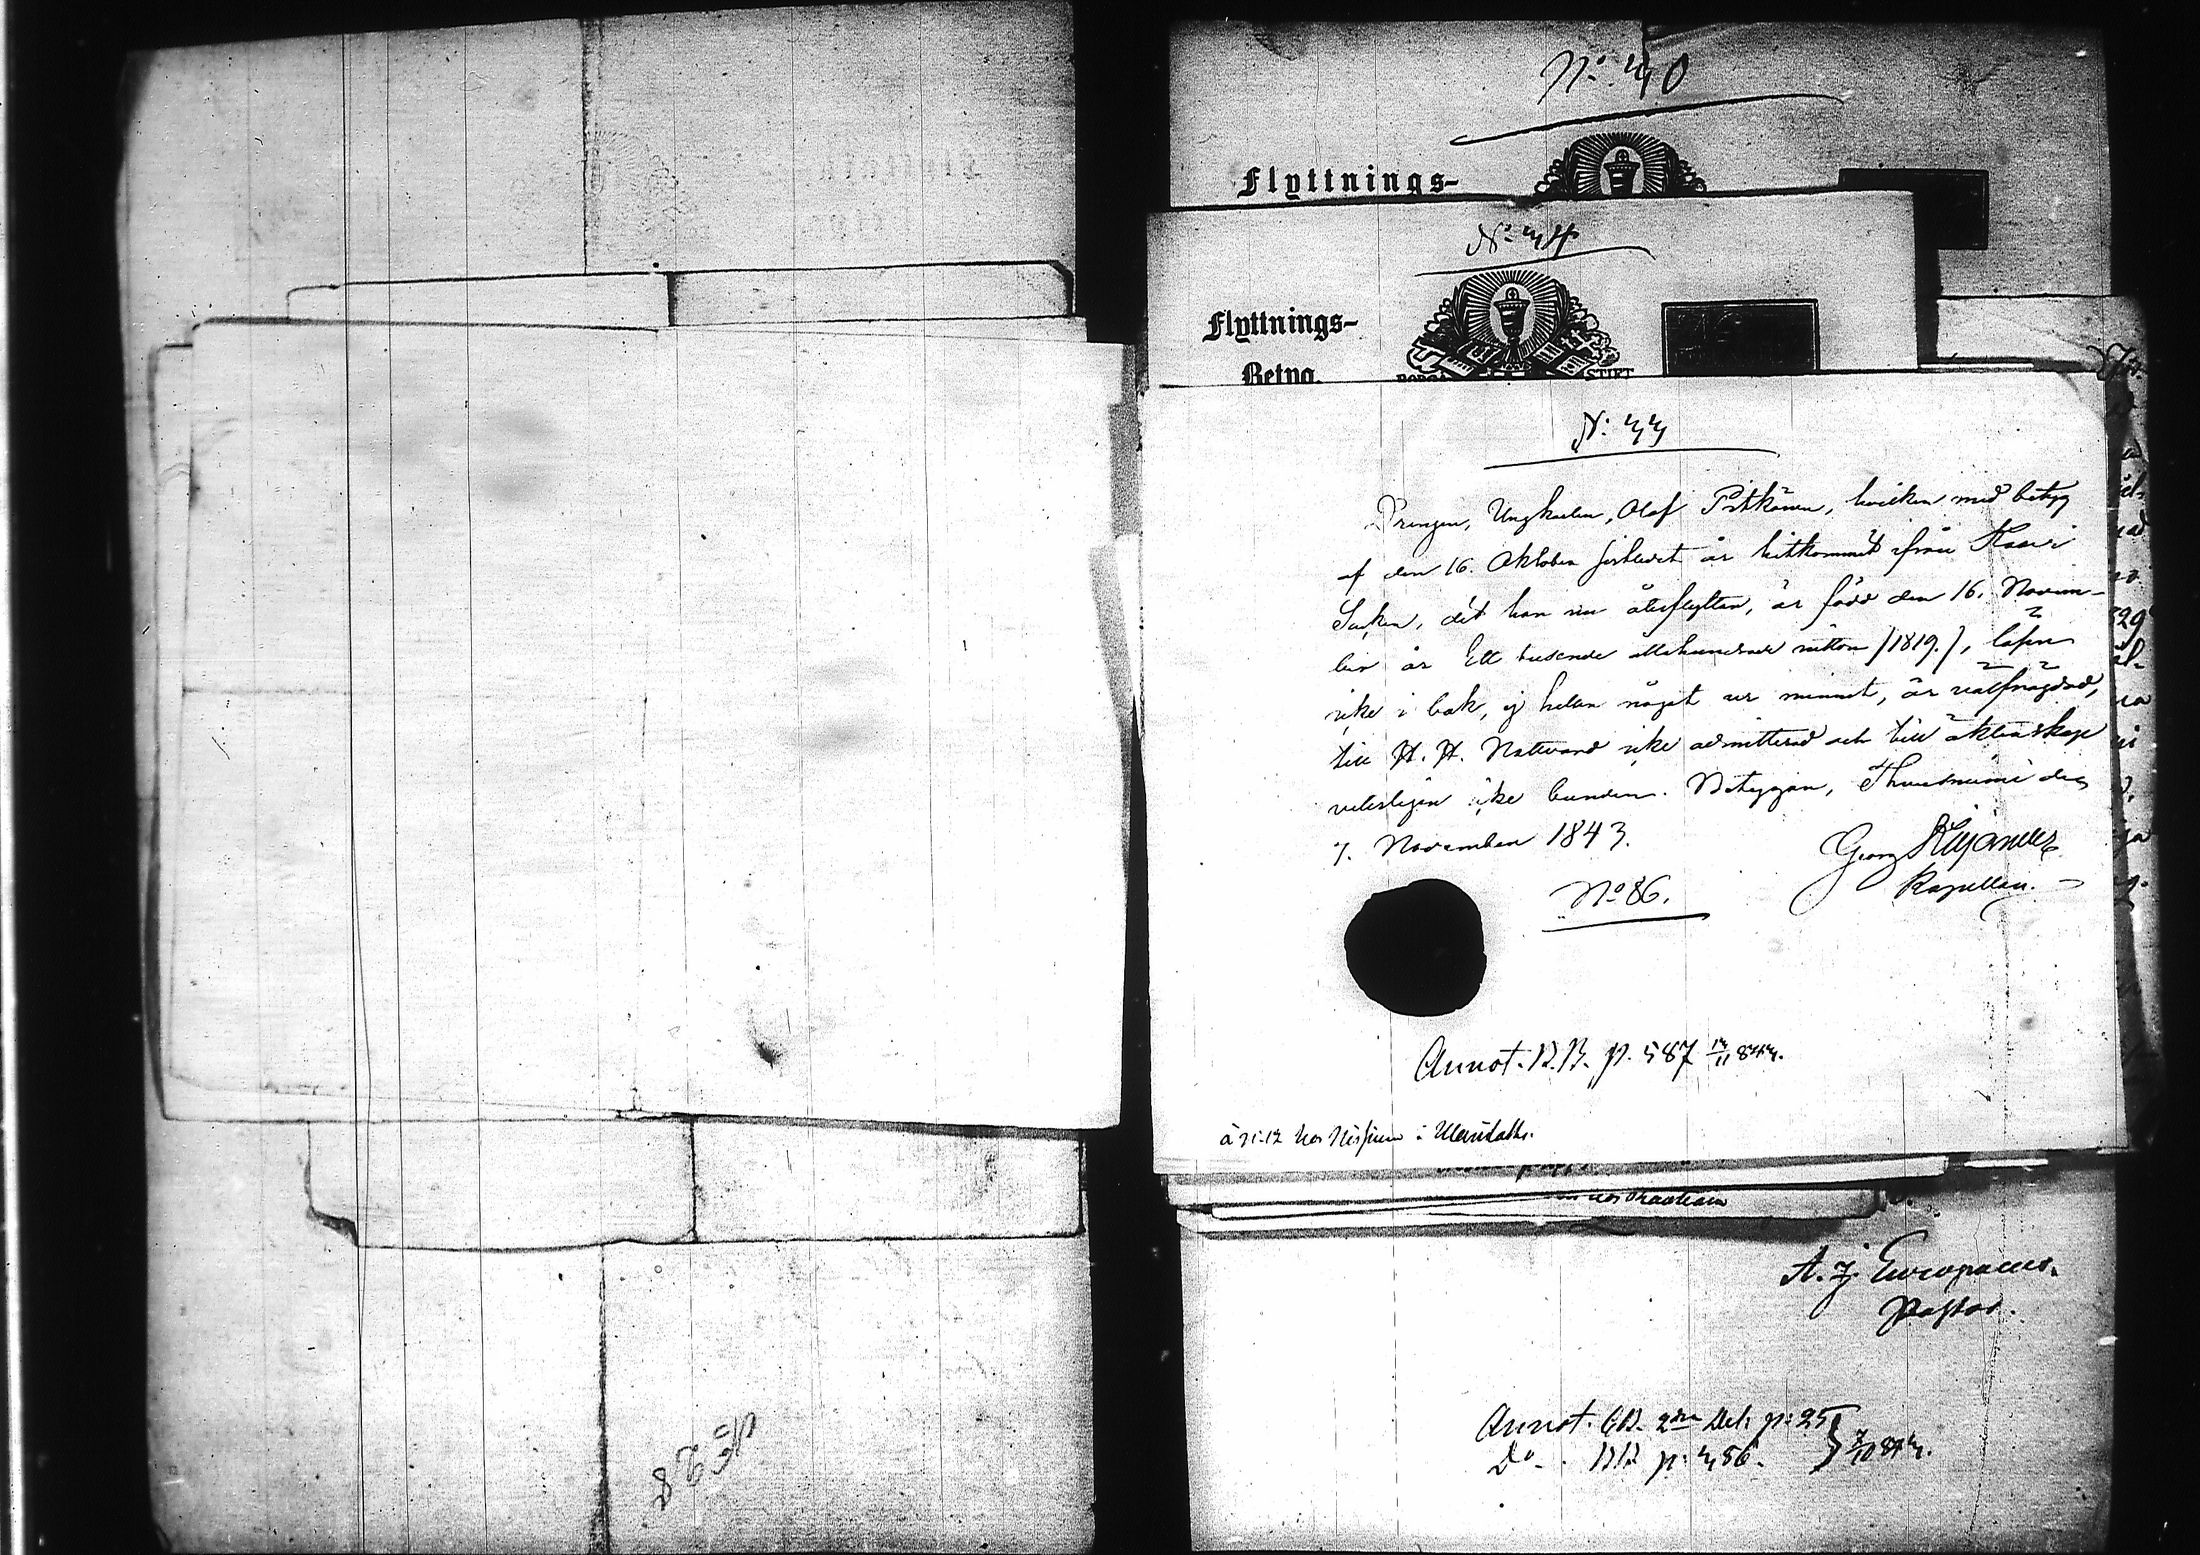 No 40
Flyttnings-
No 34
Flyttnings-
Betyg.
STIFT
N: 33
Drengen, Ungkarlen, Olof Pitkänen, hvilken med betyg
af den 16. Oktober förledet år hitkommit ifrån Kaavi
Socken, dit han nu återflyttar, är född den 16. Novem-
ber år Ett tusende åttahundrade nitton (1819.), läser
icke i bok, ej heller något ur minnet, är välfrägdad,
till H. H. Nattvard icke admitterad och till äktenskap
veterligen icke bunden. Betygar, Thusniemi den
7. November 1843.
Georg Kiljander
Kapellan.
No 86.
Annot. B.B. p. 587
i
A. J. Europaeus.
Pastor.
Annot. C.B. 2dra Del. p: 25
Do B.B. p: 386.